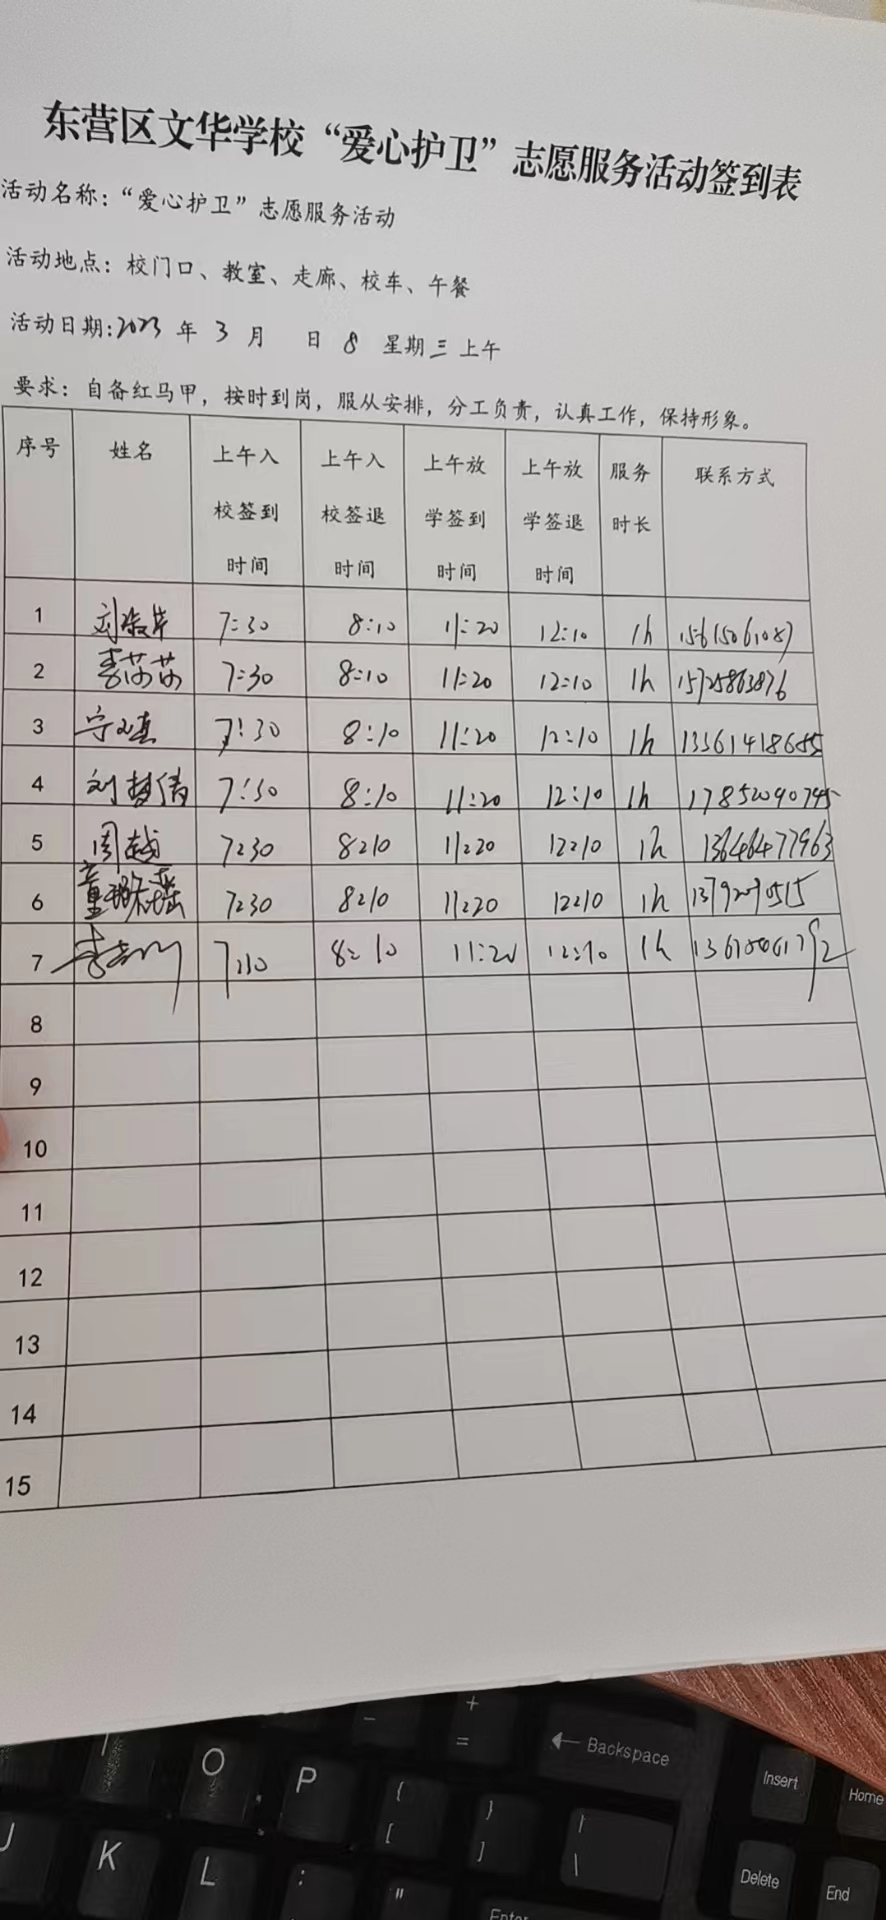 东营区文华学校“爱心护卫”志愿服务活动签到表
活动名称：“爱心护卫”志愿服务活动
活动地点：校门口、教室、走廊、校车、午餐
活动日期：2023 年 3 月 日 8 星期三 上午
要求：自备红马甲，按时到岗，服从安排，分工负责，认真工作，保持形象。
序号 姓名 上午入校签到时间 上午入校签退时间 上午放学签到时间 上午放学签退时间 服务时长 联系方式
1 7:30 8:10 11:20 12:10 1h 15615061087
2 李莎莎 7:30 8:10 11:20 12:10 1h 15725863876
3 7:30 8:10 11:20 12:10 1h
4 刘梦倩 7:30 8:10 11:20 12:10 1h
5 周越 7:30 8:10 11:20 12:10 1h 13646477963
6 童璐瑶 7:30 8:10 11:20 12:10 1h
7 8:10 11:20 12:10 1h
8
9
10
11
12
13
14
15
- + =
Backspace
O P { [ } ] | \
Insert Home
J K L : "
Enter
Delete End